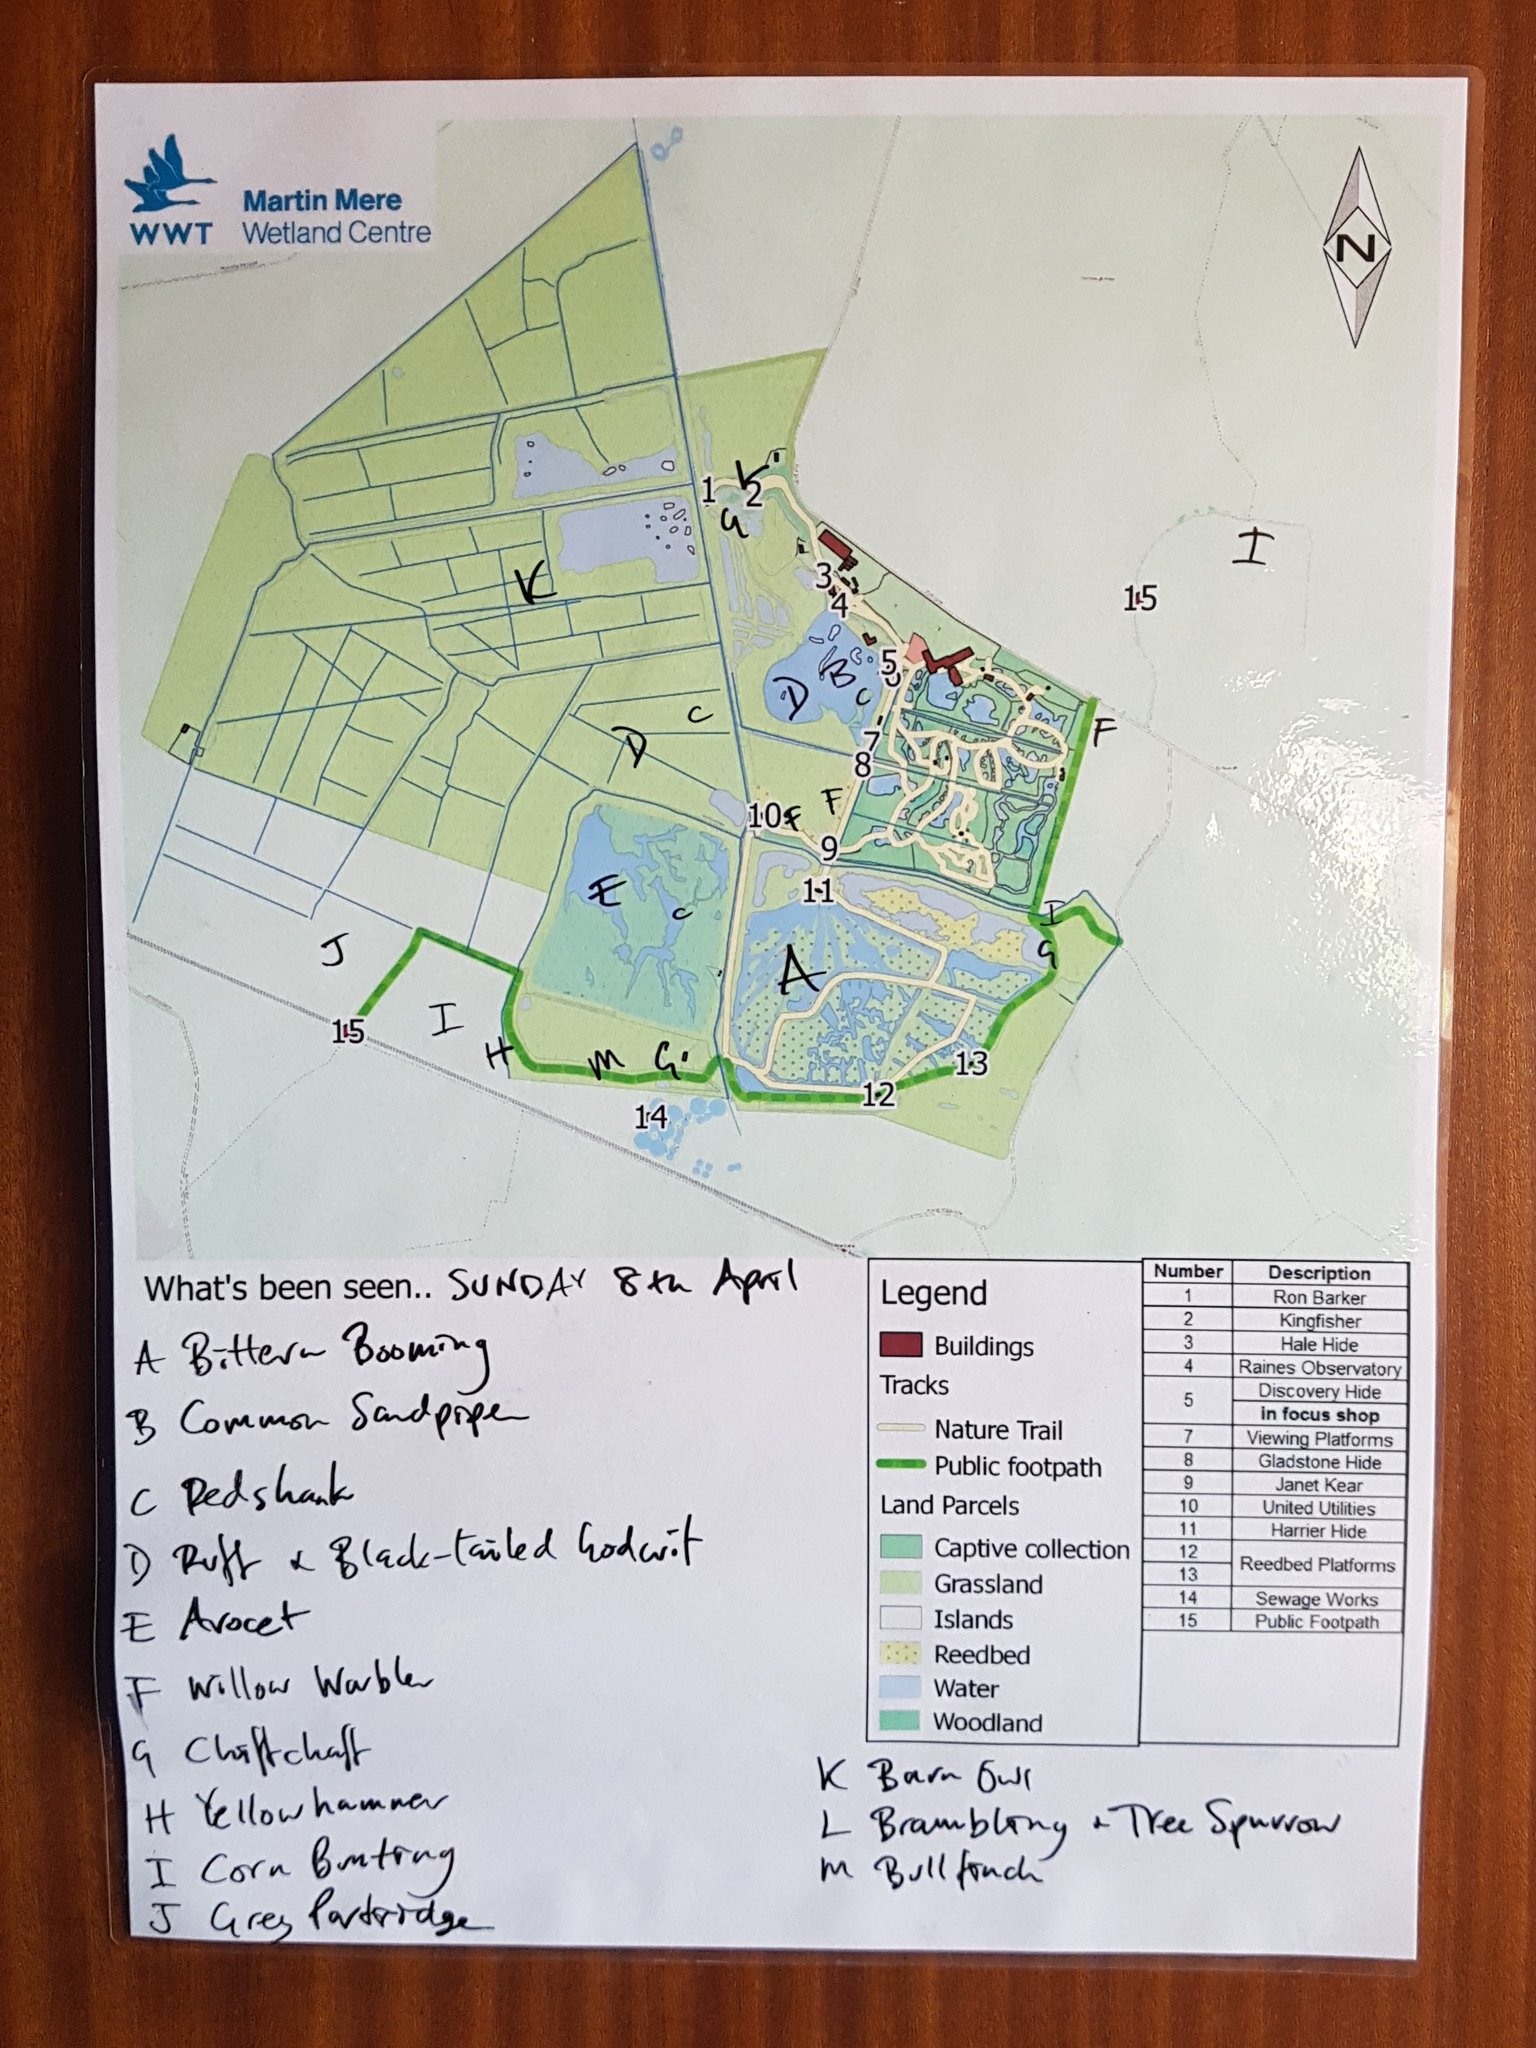 WWT
Martin Mere
Wetland Centre
N
K
1
2
G
K
3
I
15
4
5
6
B
D
C
C
F
D
7
8
F
10
F
9
E
11
C
I
J
G
A
I
15
H
M
G
13
12
14
What's been seen.. SUNDAY 8th April
A Bittern Booming
B Common Sandpiper
C Redshank
D Ruff & Black-tailed Godwit
E Avocet
F Willow Warbler
G Chiffchaff
H Yellowhammer
I Corn Bunting
J Grey Partridge
Legend
Buildings
Tracks
Nature Trail
Public footpath
Land Parcels
Captive collection
Grassland
Islands
Reedbed
Water
Woodland
Number Description
1 Ron Barker
2 Kingfisher
3 Hale Hide
4 Raines Observatory
5 Discovery Hide
in focus shop
7 Viewing Platforms
8 Gladstone Hide
9 Janet Kear
10 United Utilities
11 Harrier Hide
12 Reedbed Platforms
13
14 Sewage Works
15 Public Footpath
K Barn Owl
L Brambling & Tree Sparrow
M Bullfinch